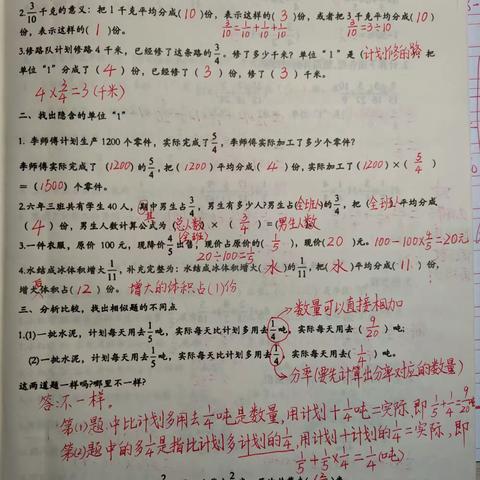 2.3/10千克的意义：把1千克平均分成(10)份，表示这样的(3)份，或者把3千克平均分成(10)
份，表示这样的(1)份。 3/10=1/10+1/10+1/10 3/10=3÷10
3.修路队计划修路4千米，已经修了这条路的3/4。修了多少千米？单位“1”是(计划修的路)把
单位“1”分成了(4)份，已经修了(3)份，修了(3)千米。
4×3/4=3(千米)
二、找出隐含的单位“1”
1. 李师傅计划生产1200个零件，实际完成了5/4，李师傅实际加工了多少个零件？
李师傅实际完成了(1200)的5/4，把(1200)平均分成(4)份，实际加工了(1200)×(5/4)
=(1500)个零件。
2.六年三班共有学生40人，其中男生占3/4，男生有多少人？男生占(全班人)的3/4，把(全班人)平均分成
(4)份，男生人数计算公式为(总人数)×(3/4)=(男生人数)
(全班)
3.一件衣服，原价100元，现降价4/5出售，现价占原价的(1/5)，现价(20)元。 100-100×4/5=20元
20÷100=1/5
4.水结成冰体积增大1/11，补充完整为：水结成冰体积增大(水)的1/11，把(水)平均分成(11)份，
增大后体积占(12)份。 增大的体积占(1)份
三、分析比较，找出相似题的不同点
数量可以直接相加
1.(1)一批水泥，计划每天用去1/5吨，实际每天比计划多用去1/4吨，实际每天用去(9/20)吨；
(2)一批水泥，计划每天用去1/5吨，实际每天比计划多用去1/4，实际每天用去(1/4)吨。
分率(要先计算出分率对应的数量)
这两道题一样吗？哪里不一样？
答:不一样。
第(1)题中比计划多用去1/4吨是数量，用计划+1/4吨=实际，即1/5+1/4=9/20吨
第(2)题中的多1/4是指比计划多计划的1/4，用计划+计划的1/4=实际，即
1/5+1/5×1/4=1/4(吨)